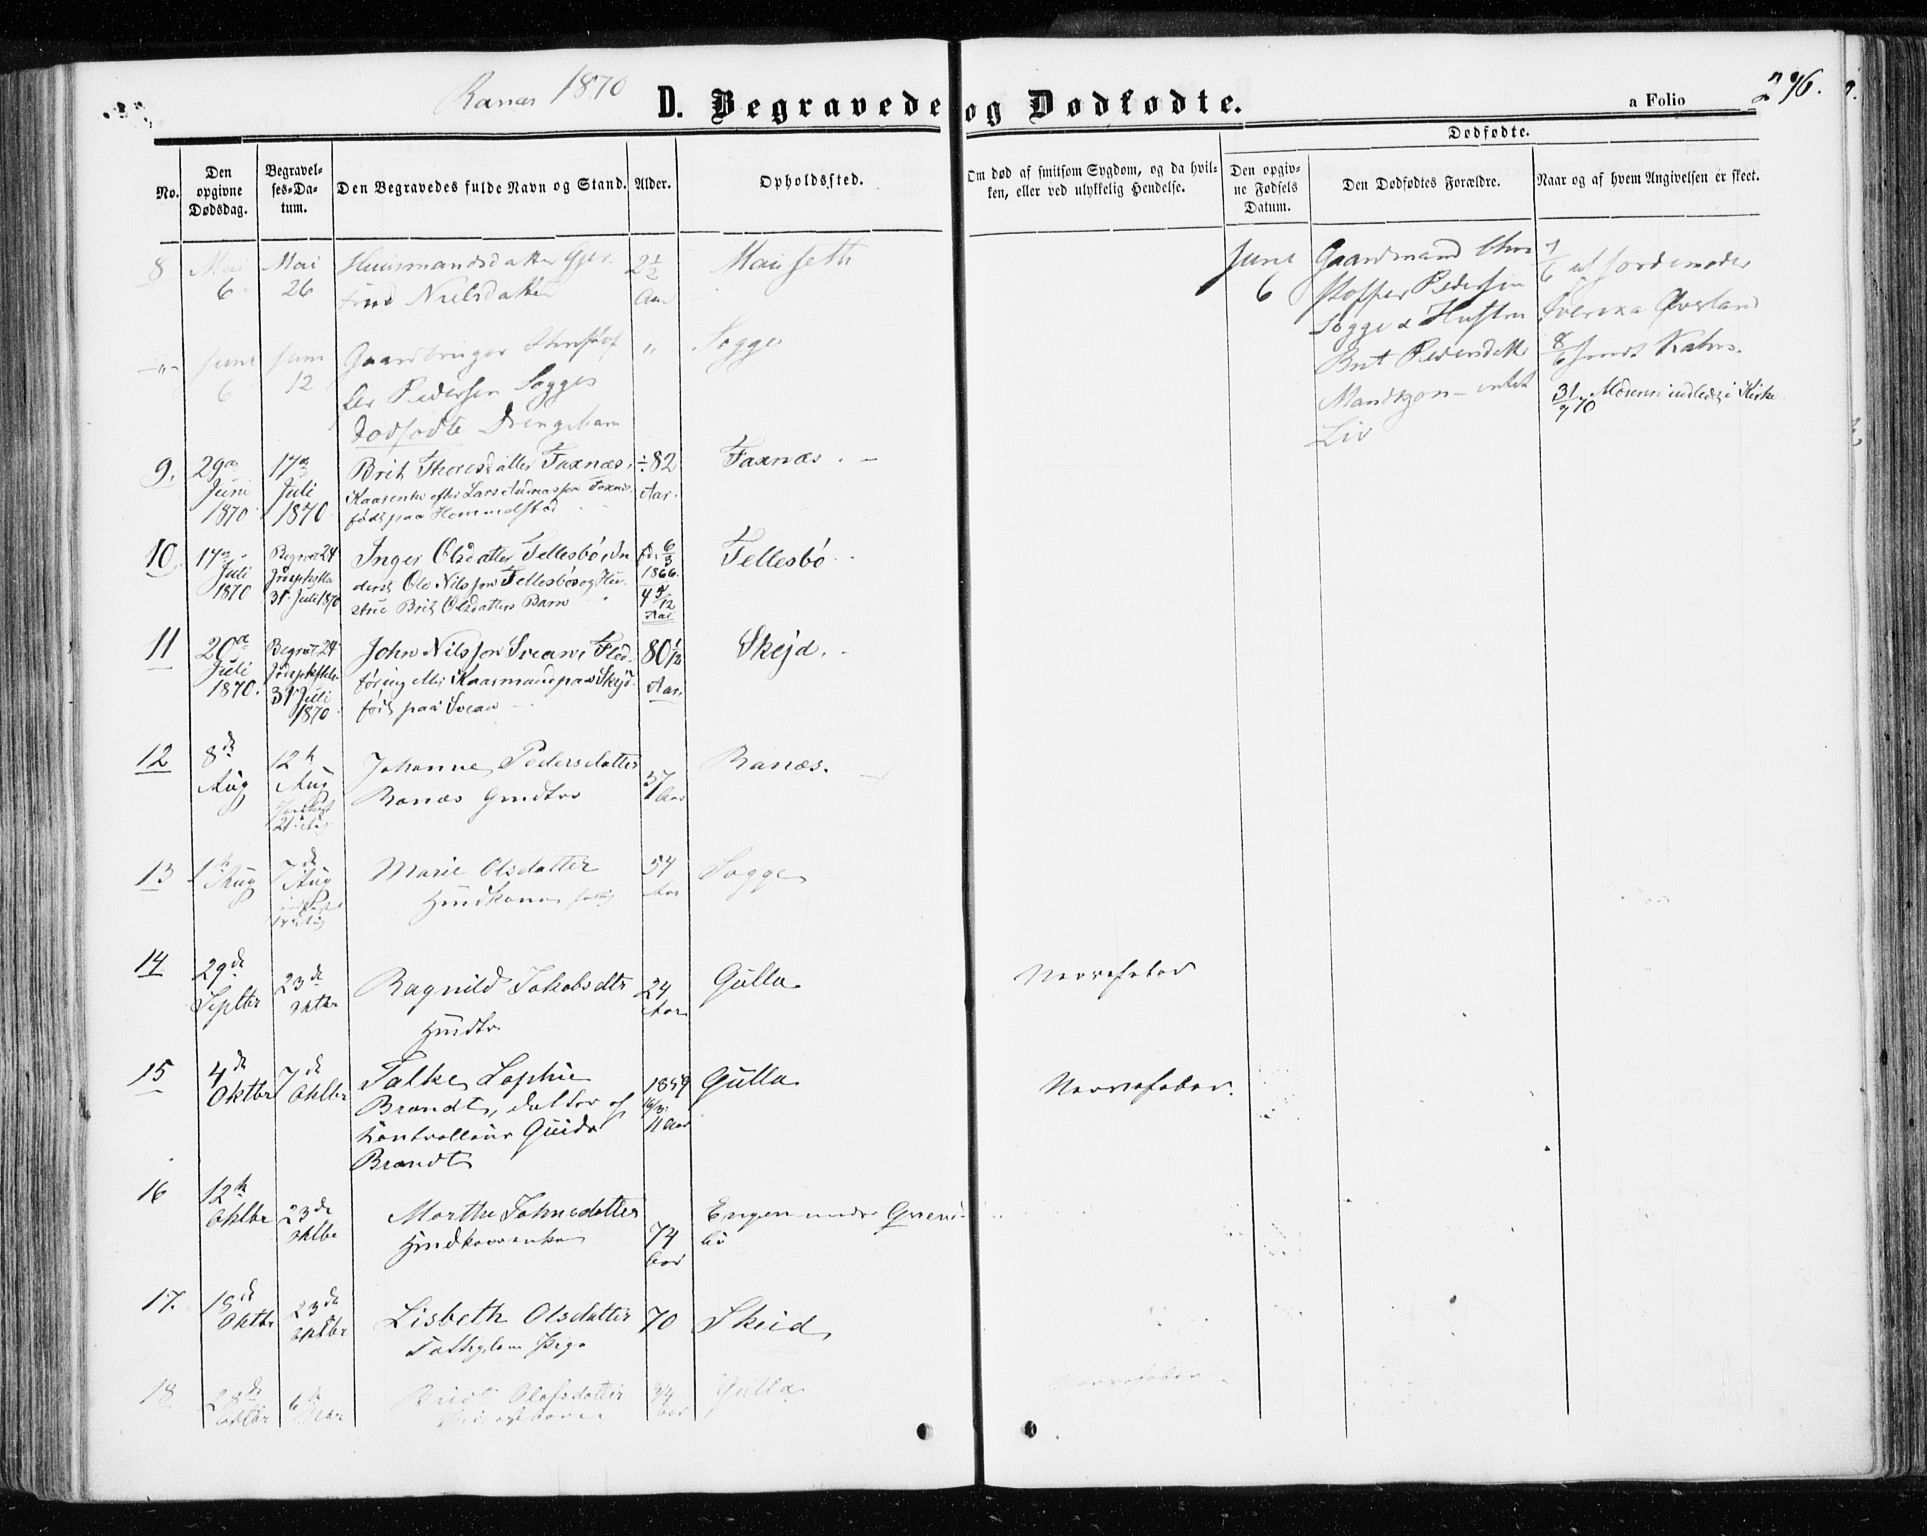 Ranæs 1870
D. Begravede og Dødfødte.
a Folio
296.
No.
Den opgivne Dødsdag.
Begravelses-Datum.
Den Begravedes fulde Navn og Stand.
Alder.
Opholdssted.
Om død af smitsom Sygdom, og da hvilken, eller ved ulykkelig Hendelse.
Dødfødte.
Den opgivne Fødsels Datum.
Den Dødfødtes Forældre.
Naar og af hvem Angivelsen er skeet.
8
Mai
6
Mai
26
Huusmandsdatter
Nielsdatter
2½
Aar
Mauseth
Juni
6
Gaardmand Chri
stoffer Pedersen
Sogge & Hustru
Brit Pedersdatter
Mandkjøn
Liv
7/6 af Jordemoder
Øverland
8/6
-"-
Juni
6
Juni
12
Gaardbruger Christof
fer Pedersen Sogges
Dødfødte Drengebarn
"
Sogge
31/7 70 Moderen indledet i Kirke
9.
29de
Juni
1870
17de
Juli
1870
Brit Thoresdatter Faxnæs,
Kaarenke efter Lars Faxnæs
født paa Hammelstad
÷82
Aar.
Faxnæs.
10
17de
Juli
1870
Begravet 24
Jordpaakastet
31 Juli 1870
Inger Olsdatter Fellesbø, In
derst Ole Nilsson Fellesbøs og Hu
strue Brit Olsdatters Barn
fød 6/3
1866.
4 5/12
Aar
Fellesbø
11
20de
Juli
1870.
Begravet 24
31 Juli
1870
John Nilsson Svean, Fled
føring eller Kaarmand paa Skejd
født paa Svean
80 1/12
Aar.
Skejd.
12
8de
Aug
12te
Aug
21 Aug
Johanne Pedersdatter
Ranæs Gmdtr
37
Aar
Ranæs.
13
1te
Aug
7de
Aug
Marie Olsdatter
Hmdkone
54
Aar
Sogge
14
29de
Septbr
23de
Oktbr
Ragnild Jakobsdtr
Hmdtr
24
Aar
Gulla
Nervefeber
15
4de
Oktbr
7de
Oktbr
Falke Sophie
Brandt, datter af
Kontrolleur Guido
Brandt
1859
16/3
11 Aar
Gulla
Nervefeber.
16
12te
Oktbr
23de
Oktbr
Marthe Johnsdatter
Hmdkaarenke
74
Aar
Engen under
17.
15de
Oktbr
23de
Oktbr
Lisbeth Olsdatter
Fattiglem Pige
70
Skeid
18
28de
Oktbr
6te
Brit Olafsdatter
34
Aar
Gulla
Nervefeber